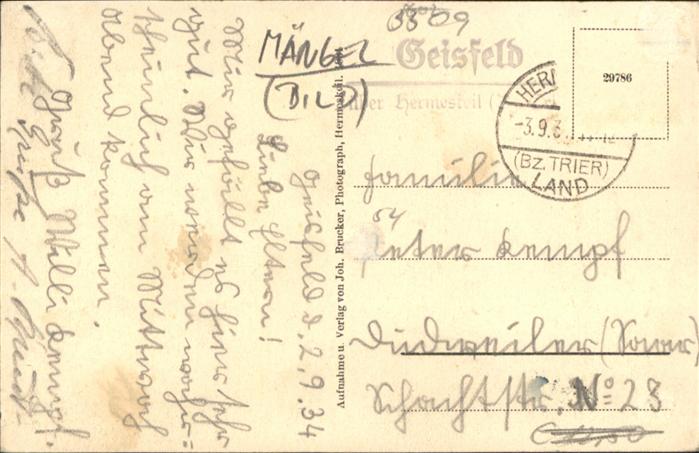 Geisfeld d. 2.9.34
Liebe Eltern!
Mir gefällt es hier sehr
gut. Wir werden wahr=
scheinlich am Mittwoch
Abend kommen.
Gruß Willi Kempf.
Viele Grüße A.
MÄNGEL
(BILD)
Aufnahme u. Verlag von Joh. Brucker, Photograph, Hermeskeil.
3309
Geisfeld
über Hermeskeil
29786
HERM
-3.9.3
(BZ. TRIER)
LAND
Familie
54
Peter Kempf
Dudweiler (Saar)
Schachtstr. No 23